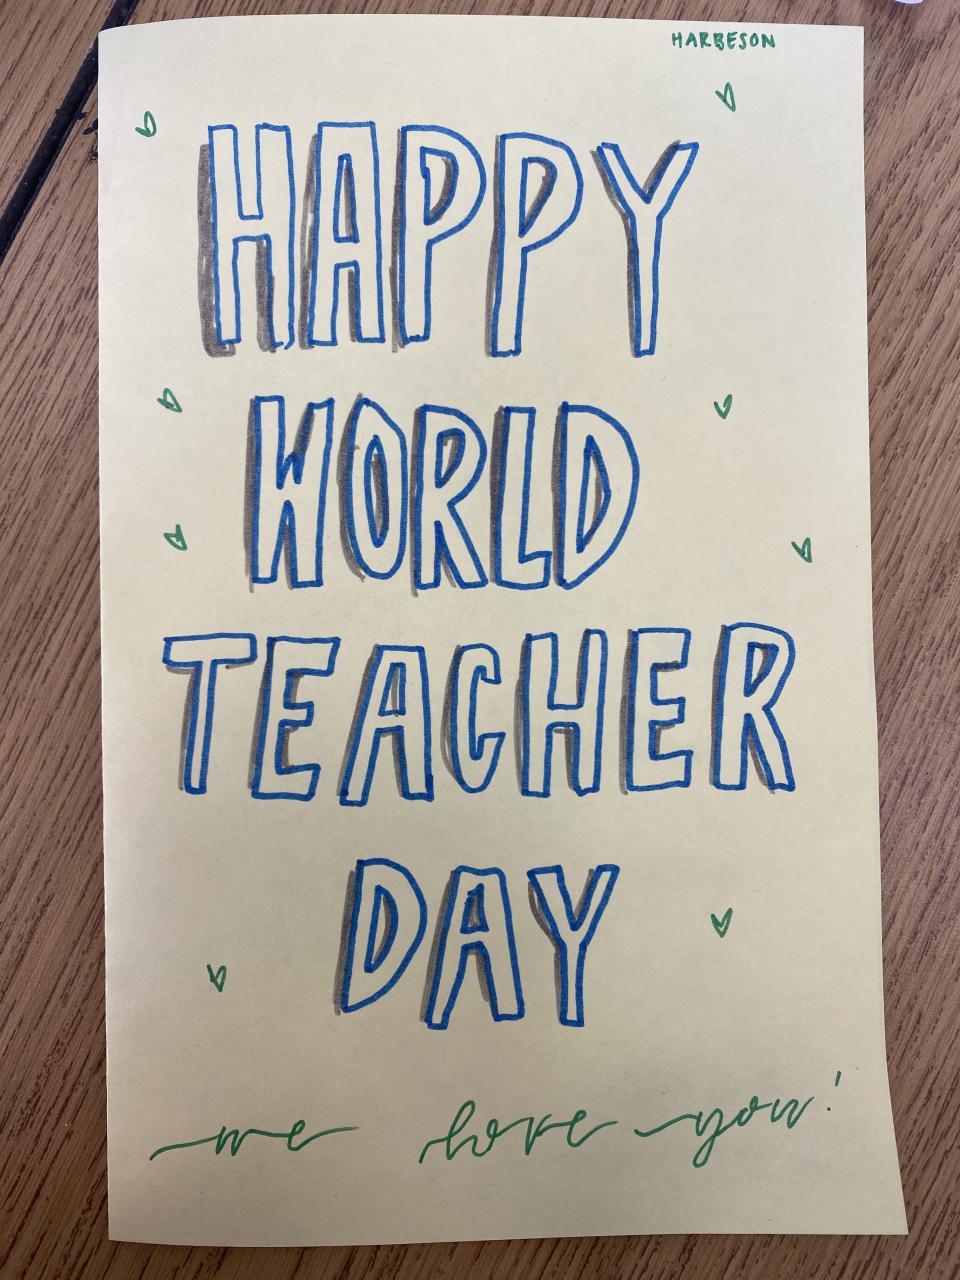 HARBESON
HAPPY
WORLD
TEACHER
DAY
we love you!